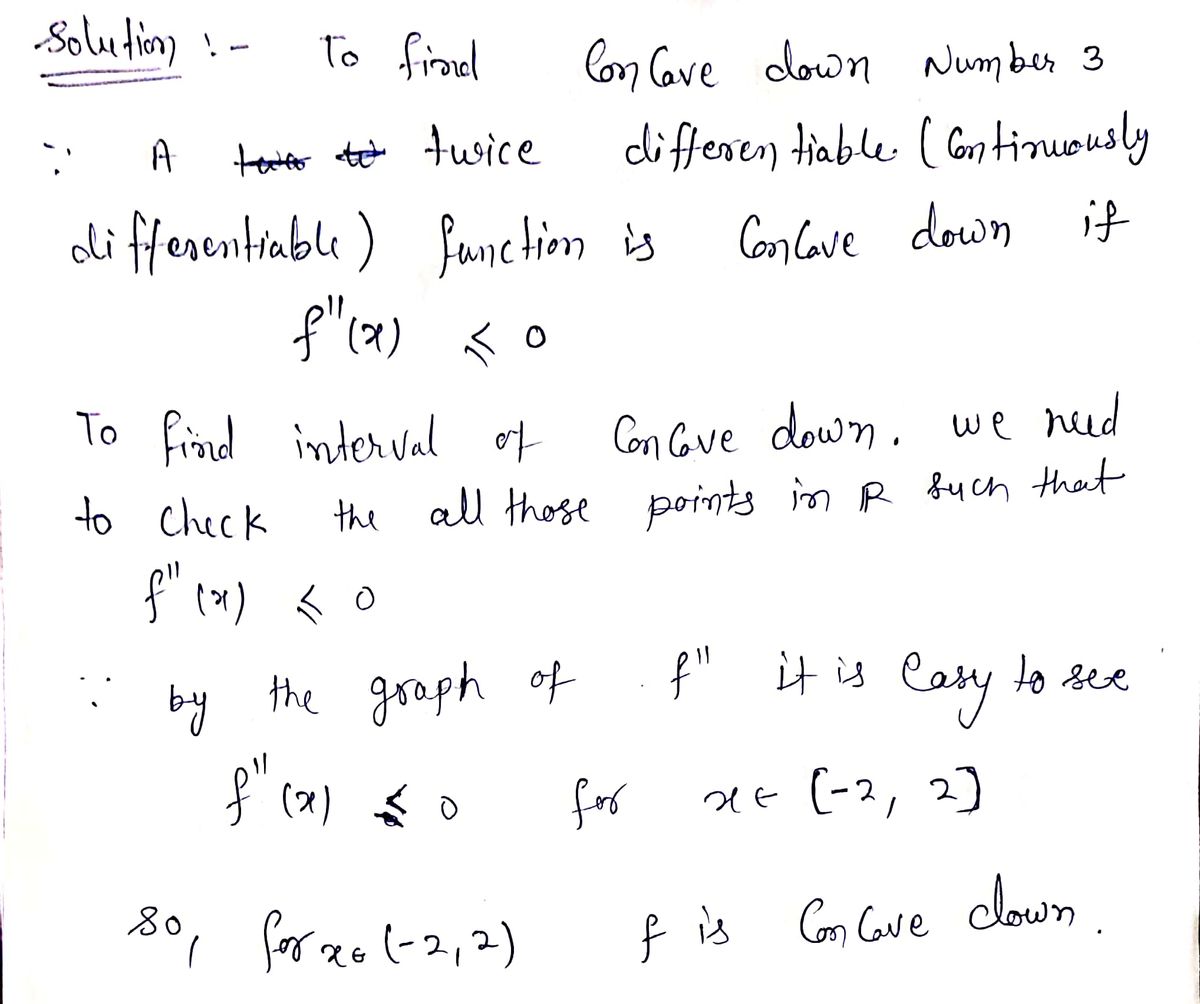 Solution :- To find Concave down Number 3
∵ A twice differentiable (Continuously
differentiable) function is Concave down if
f''(x) ⩽ 0
To find interval of Concave down. we need
to check the all those points in R such that
f''(x) ⩽ 0
∵ by the graph of f'' it is easy to see
f''(x) ⩽ 0 for x ∈ [-2, 2]
so, for x ∈ (-2, 2) f is Concave down.